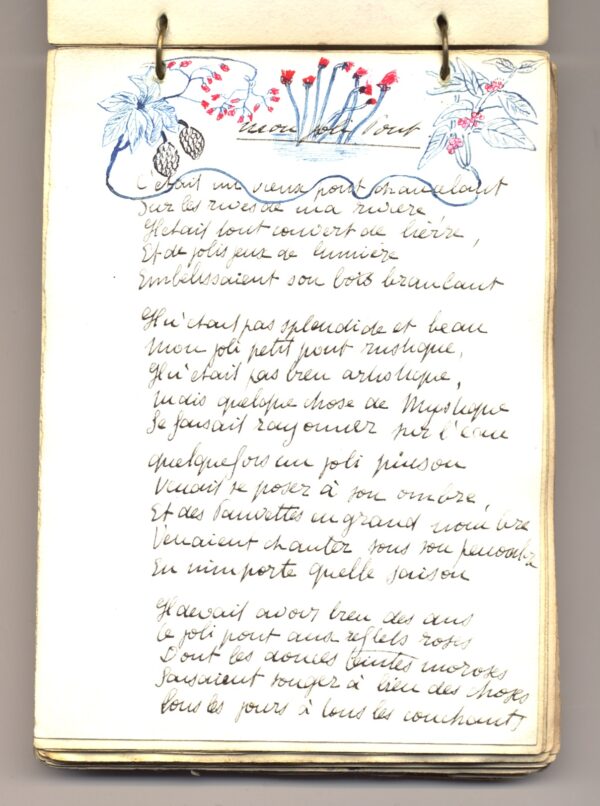 Mon Joli Pont
C'était un vieux pont chancelant
Sur les rives de ma rivière
Il était tout couvert de lierre,
Et de jolis jeux de lumière
Embelissaient son bois branlant
Il n'était pas splendide et beau
Mon joli petit pont rustique,
Il n'était pas bien artistique,
Mais quelque chose de Mystique
Le faisait rayonner sur l'eau
quelquefois un joli pinson
Venait se poser à son ombre,
Et des Fauvettes en grand nombre
Venaient chanter sous son penombre
En nimporte quelle saison
Il devait avoir bien des ans
Le joli pont aux reflets roses
Dont les douces teintes moroses
Faisaient songer à bien des choses
Tous les jours à tous les couchants